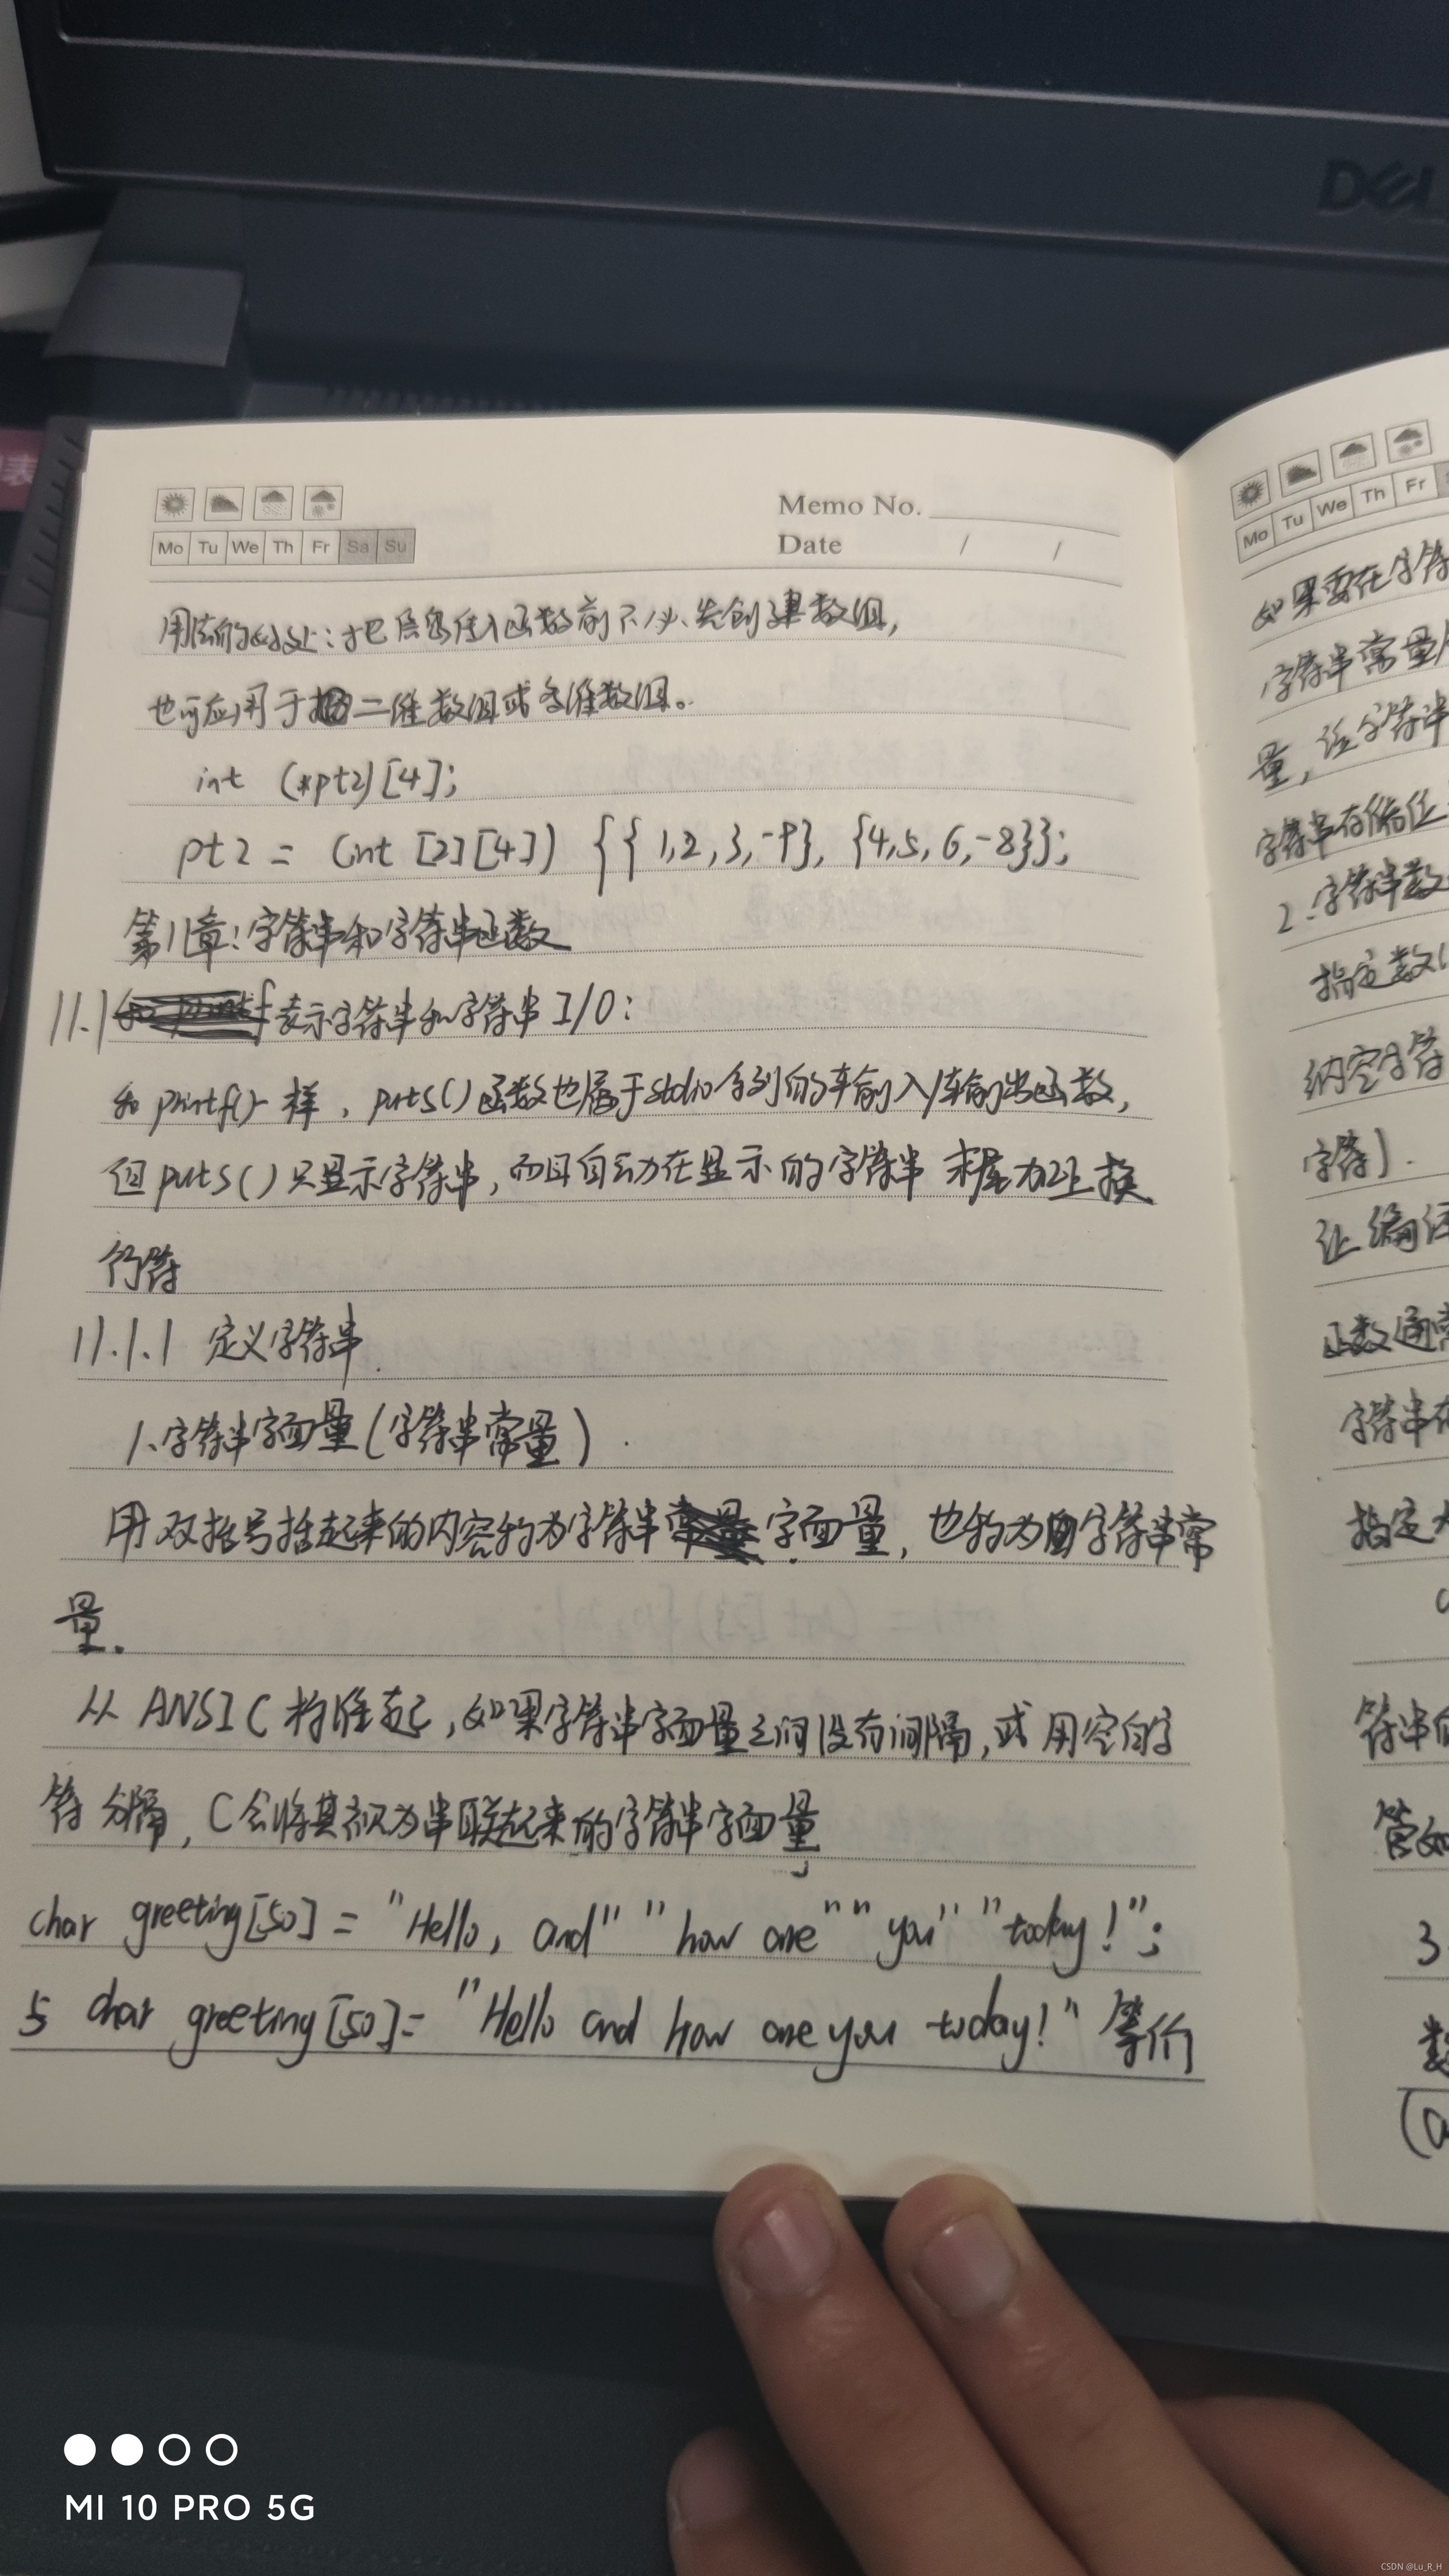 DELL
Mo Tu We Th Fr Sa Su
Memo No.
Date / /
用法的好处：把信息传入函数前不必先创建数组，
也可应用于二维数组或多维数组。
int (*pt2)[4];
pt2 = (int [2][4]) {{1,2,3,-9}, {4,5,6,-8}};
第11章：字符串和字符串函数
11.1 表示字符串和字符串 I/O：
和 printf()一样，puts()函数也属于stdio系列的输入/输出函数，
但 puts()只显示字符串，而且自动在显示的字符串末尾加上换
行符
11.1.1 定义字符串
1.字符串字面量(字符串常量)
用双括号括起来的内容称为字符串字面量，也称为字符串常
量.
从 ANSI C 标准起，如果字符串字面量之间没有间隔，或用空白字
符分隔，C会将其视为串联起来的字符串字面量
char greeting[50] = "Hello, and" "how are" "you" "today!";
与 char greeting[50]= "Hello and how are you today!" 等价
Mo Tu We Th Fr
如果要在字符
字符串常量
量，
字符串存储
2.字符串数
指定数
纳空字符
字符).
让编译
函数通常
字符串
指定
符串
管如
3
数
MI 10 PRO 5G
CSDN @Lu_R_H